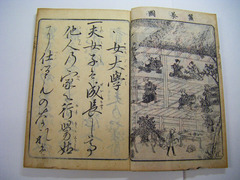 茶圖
女大學
一夫女子は成長して
他人の家へ行舅姑
に仕るものなれば